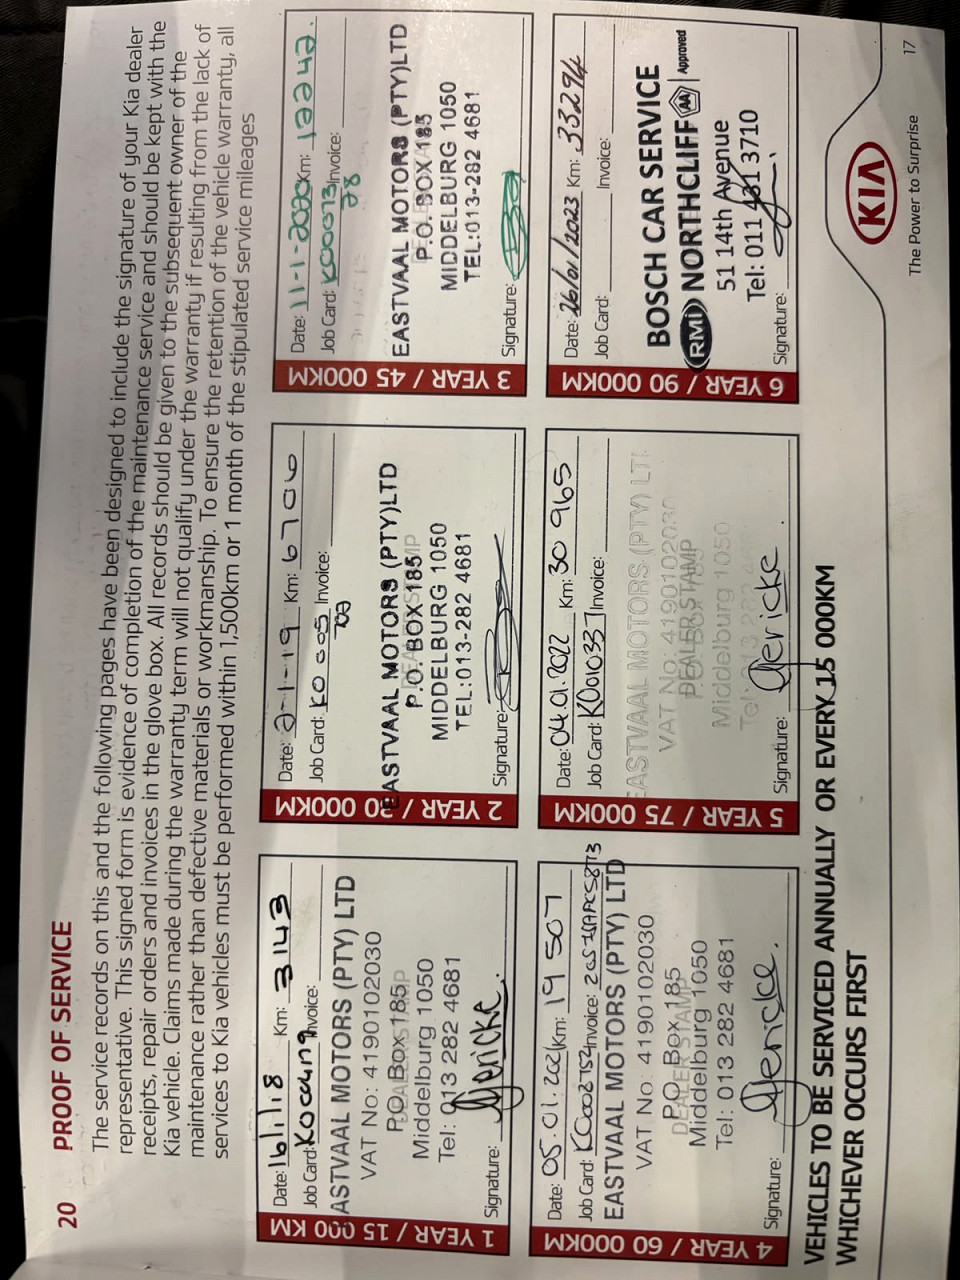 20 PROOF OF SERVICE
The service records on this and the following pages have been designed to include the signature of your Kia dealer
representative. This signed form is evidence of completion of the maintenance service and should be kept with the
receipts, repair orders and invoices in the glove box. All records should be given to the subsequent owner of the
Kia vehicle. Claims made during the warranty term will not qualify under the warranty if resulting from the lack of
maintenance rather than defective materials or workmanship. To ensure the retention of the vehicle warranty, all
services to Kia vehicles must be performed within 1,500km or 1 month of the stipulated service mileages
1 YEAR / 15 000 KM
Date: 16/1/18 Km: 3143
Job Card: Invoice:
ASTVAAL MOTORS (PTY) LTD
VAT No: 4190102030
P.O. Box 185
Middelburg 1050
Tel: 013 282 4681
Signature: Gericke
2 YEAR / 30 000KM
Date: 2-1-19 Km: 6706
Job Card: K0 005 Invoice:
702
EASTVAAL MOTORS (PTY)LTD
P.O. BOX 185
MIDDELBURG 1050
TEL:013-282 4681
Signature:
3 YEAR / 45 000KM
Date: 11-1-2020 Km: 12242.
Job Card: K00073 Invoice:
28
EASTVAAL MOTORS (PTY)LTD
P.O. BOX 185
MIDDELBURG 1050
TEL:013-282 4681
Signature:
4 YEAR / 60 000KM
Date: 05.01.2021 Km: 19 507
Job Card: K0002752 Invoice:
EASTVAAL MOTORS (PTY) LTD
VAT No: 4190102030
P.O. Box 185
DEALER STAMP
Middelburg 1050
Tel: 013 282 4681
Signature: Gericke.
5 YEAR / 75 000KM
Date: 04.01.2022 Km: 30 965
Job Card: K001033 Invoice:
EASTVAAL MOTORS (PTY) LT
VAT No: 4190102030
DEALER STAMP
Middelburg 1050
Signature: Gericke
6 YEAR / 90 000KM
Date: 26/01/2023 Km: 33294
Job Card: Invoice:
BOSCH CAR SERVICE
RMI NORTHCLIFF AA Approved
51 14th Avenue
Tel: 011 431 3710
Signature:
VEHICLES TO BE SERVICED ANNUALLY OR EVERY 15 000KM
WHICHEVER OCCURS FIRST
KIA
The Power to Surprise
17